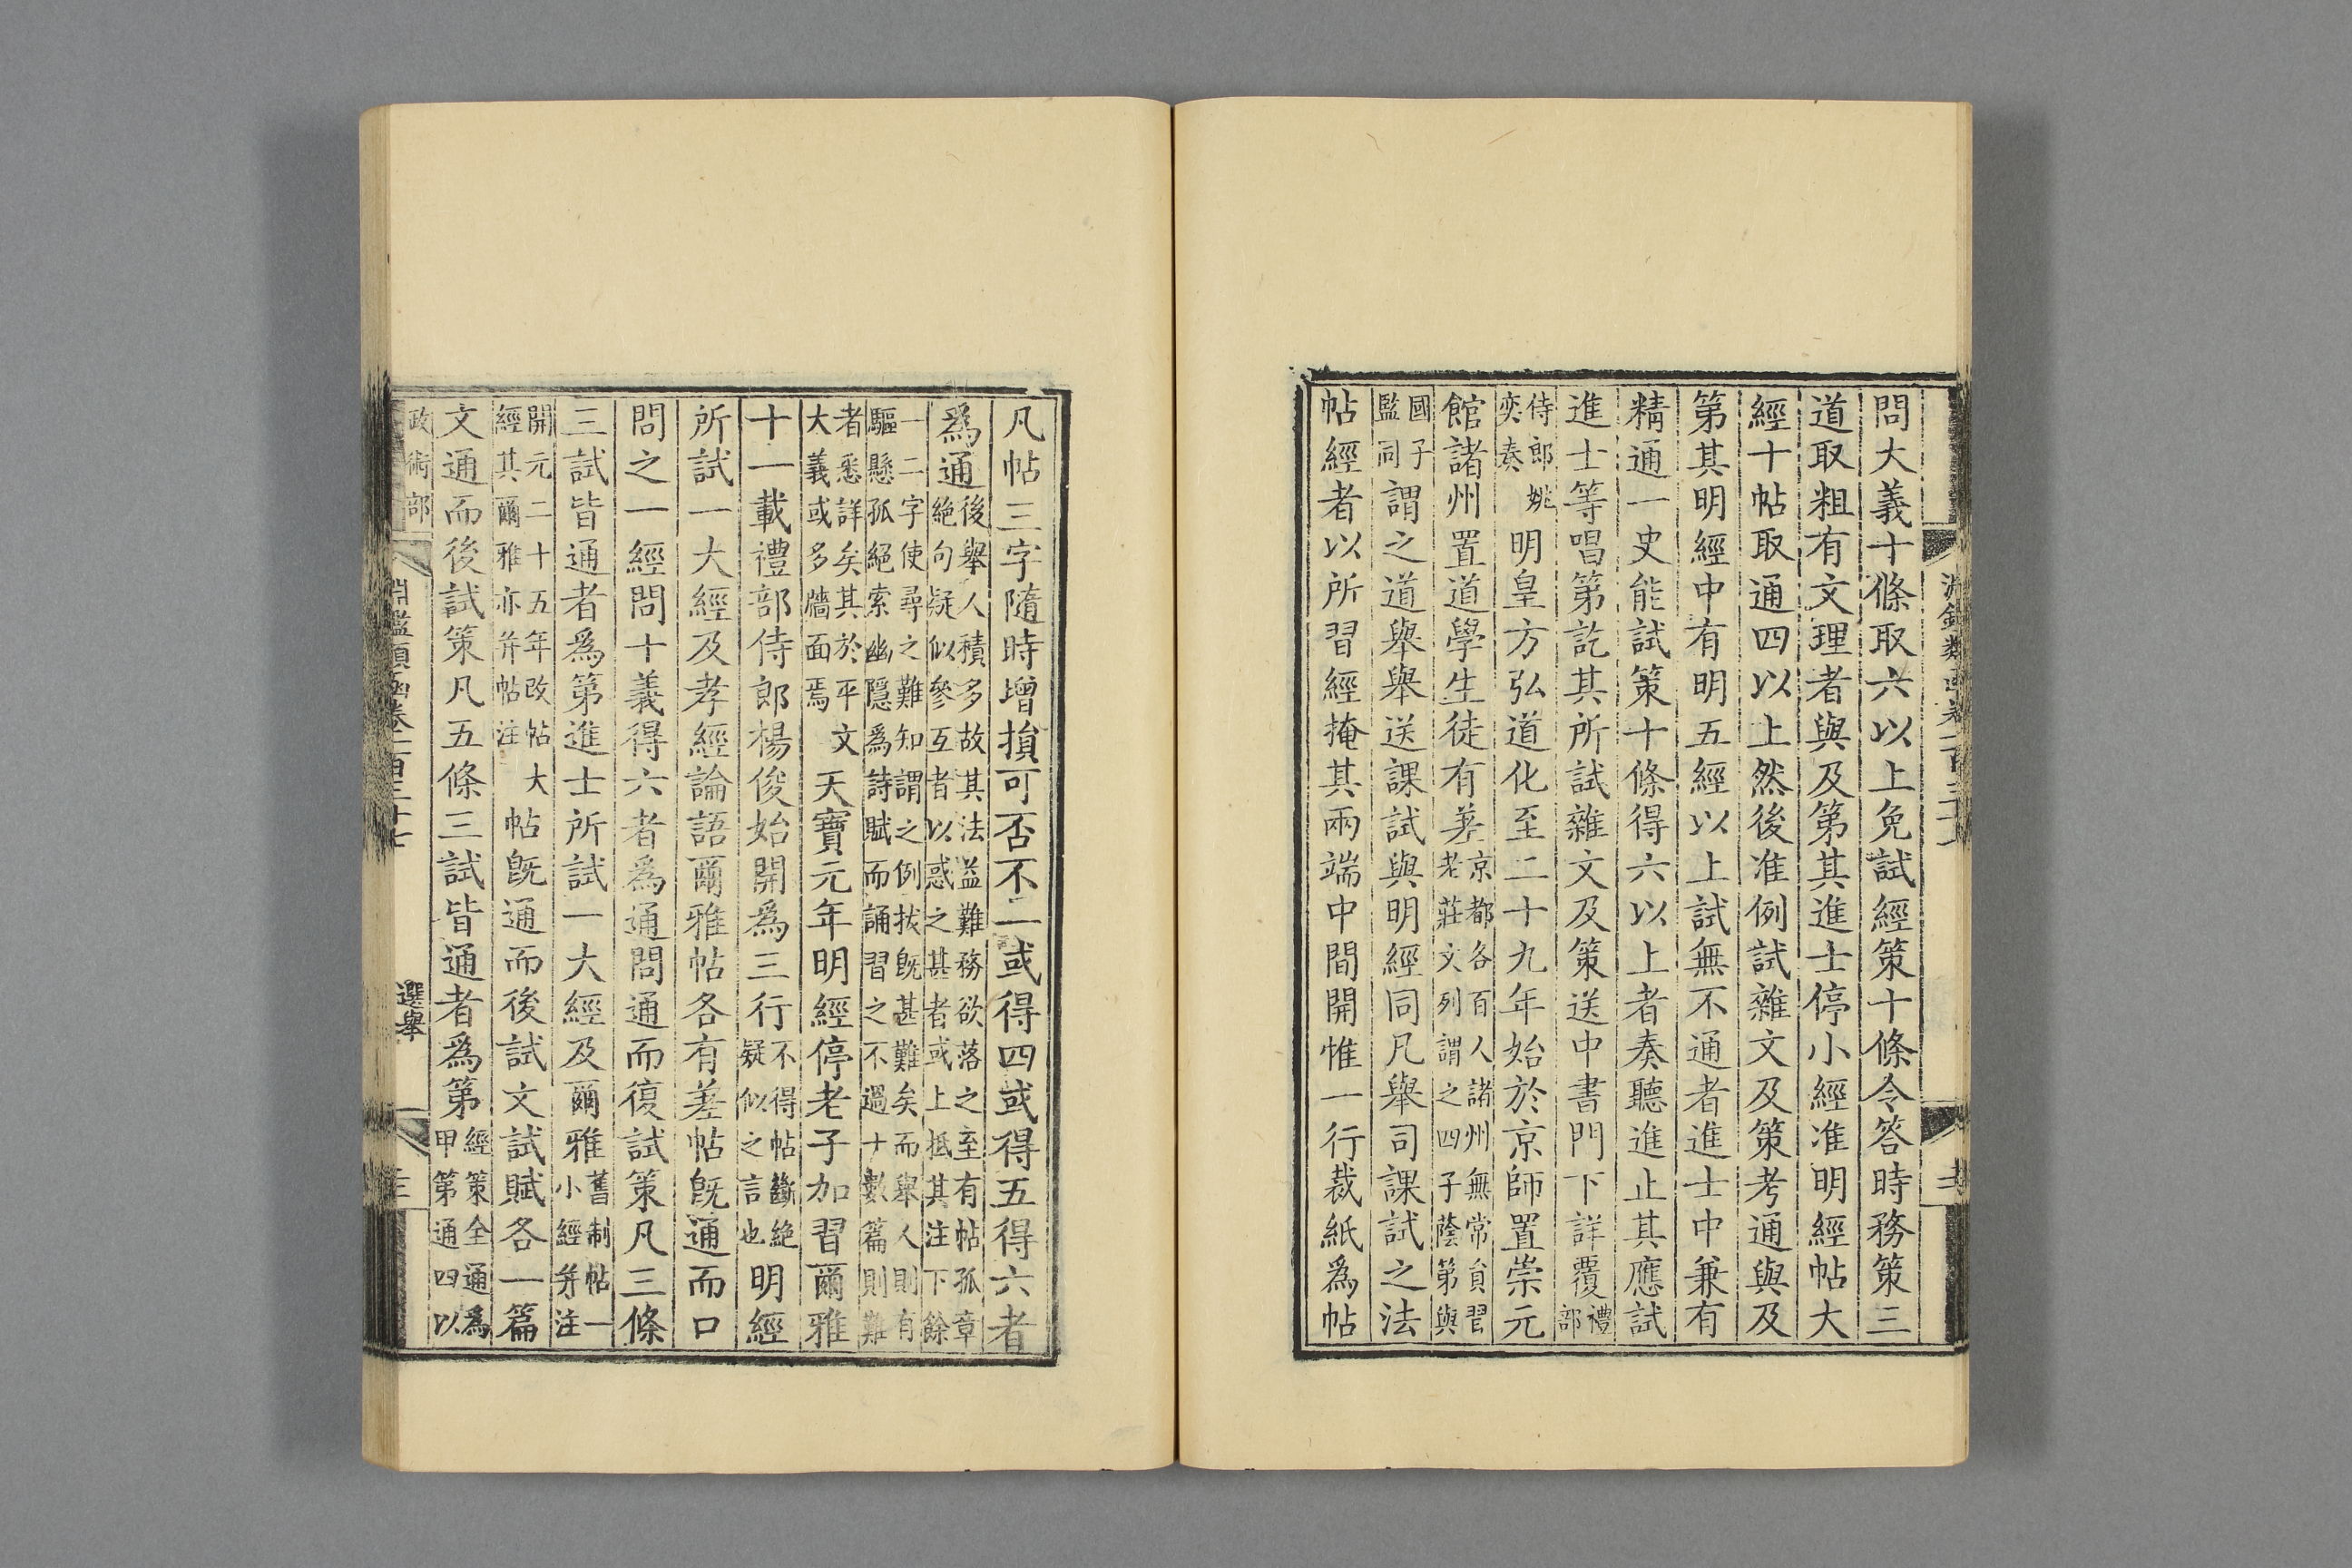 問大義十條取六以上免試經策十條令答時務策三
道取粗有文理者與及第其進士停小經准明經帖大
經十帖取通四以上然後准例試雜文及策考通與及
第其明經中有明五經以上試無不通者進士中兼有
精通一史能試策十條得六以上者奏聽進止其應試
進士等唱第訖其所試雜文及策送中書門下詳覆禮部
侍郎姚奕奏明皇方弘道化至二十九年始於京師置崇元
館諸州置道學生徒有差京都各百人諸州無常員習老莊文列謂之四子蔭第與
國子監同謂之道舉舉送課試與明經同凡舉司課試之法
帖經者以所習經掩其兩端中間開惟一行裁紙爲帖
凡帖三字隨時增損可否不一或得四或得五得六者
爲通後舉人積多故其法益難務欲落之至有帖孤章絕句疑似參互者以惑之甚者或上抵其注下餘
一二字使尋之難知謂之例拔既甚難矣而舉人則有驅懸孤絕索幽隱爲詩賦而誦習之不過十數篇則難
者悉詳矣其於平文大義或多牆面焉天寶元年明經停老子加習爾雅
十一載禮部侍郎楊俊始開爲三行不得帖斷絕疑似之言也明經
所試一大經及孝經論語爾雅帖各有差帖既通而口
問之一經問十義得六者爲通問通而復試策凡三條
三試皆通者爲第進士所試一大經及爾雅舊制帖一小經并注
開元二十五年改帖大經其爾雅亦并帖注帖既通而後試文試賦各一篇
文通而後試策凡五條三試皆通者爲第經策全通爲甲第通四以
政術部
淵鑑類函卷一百三十七
選舉